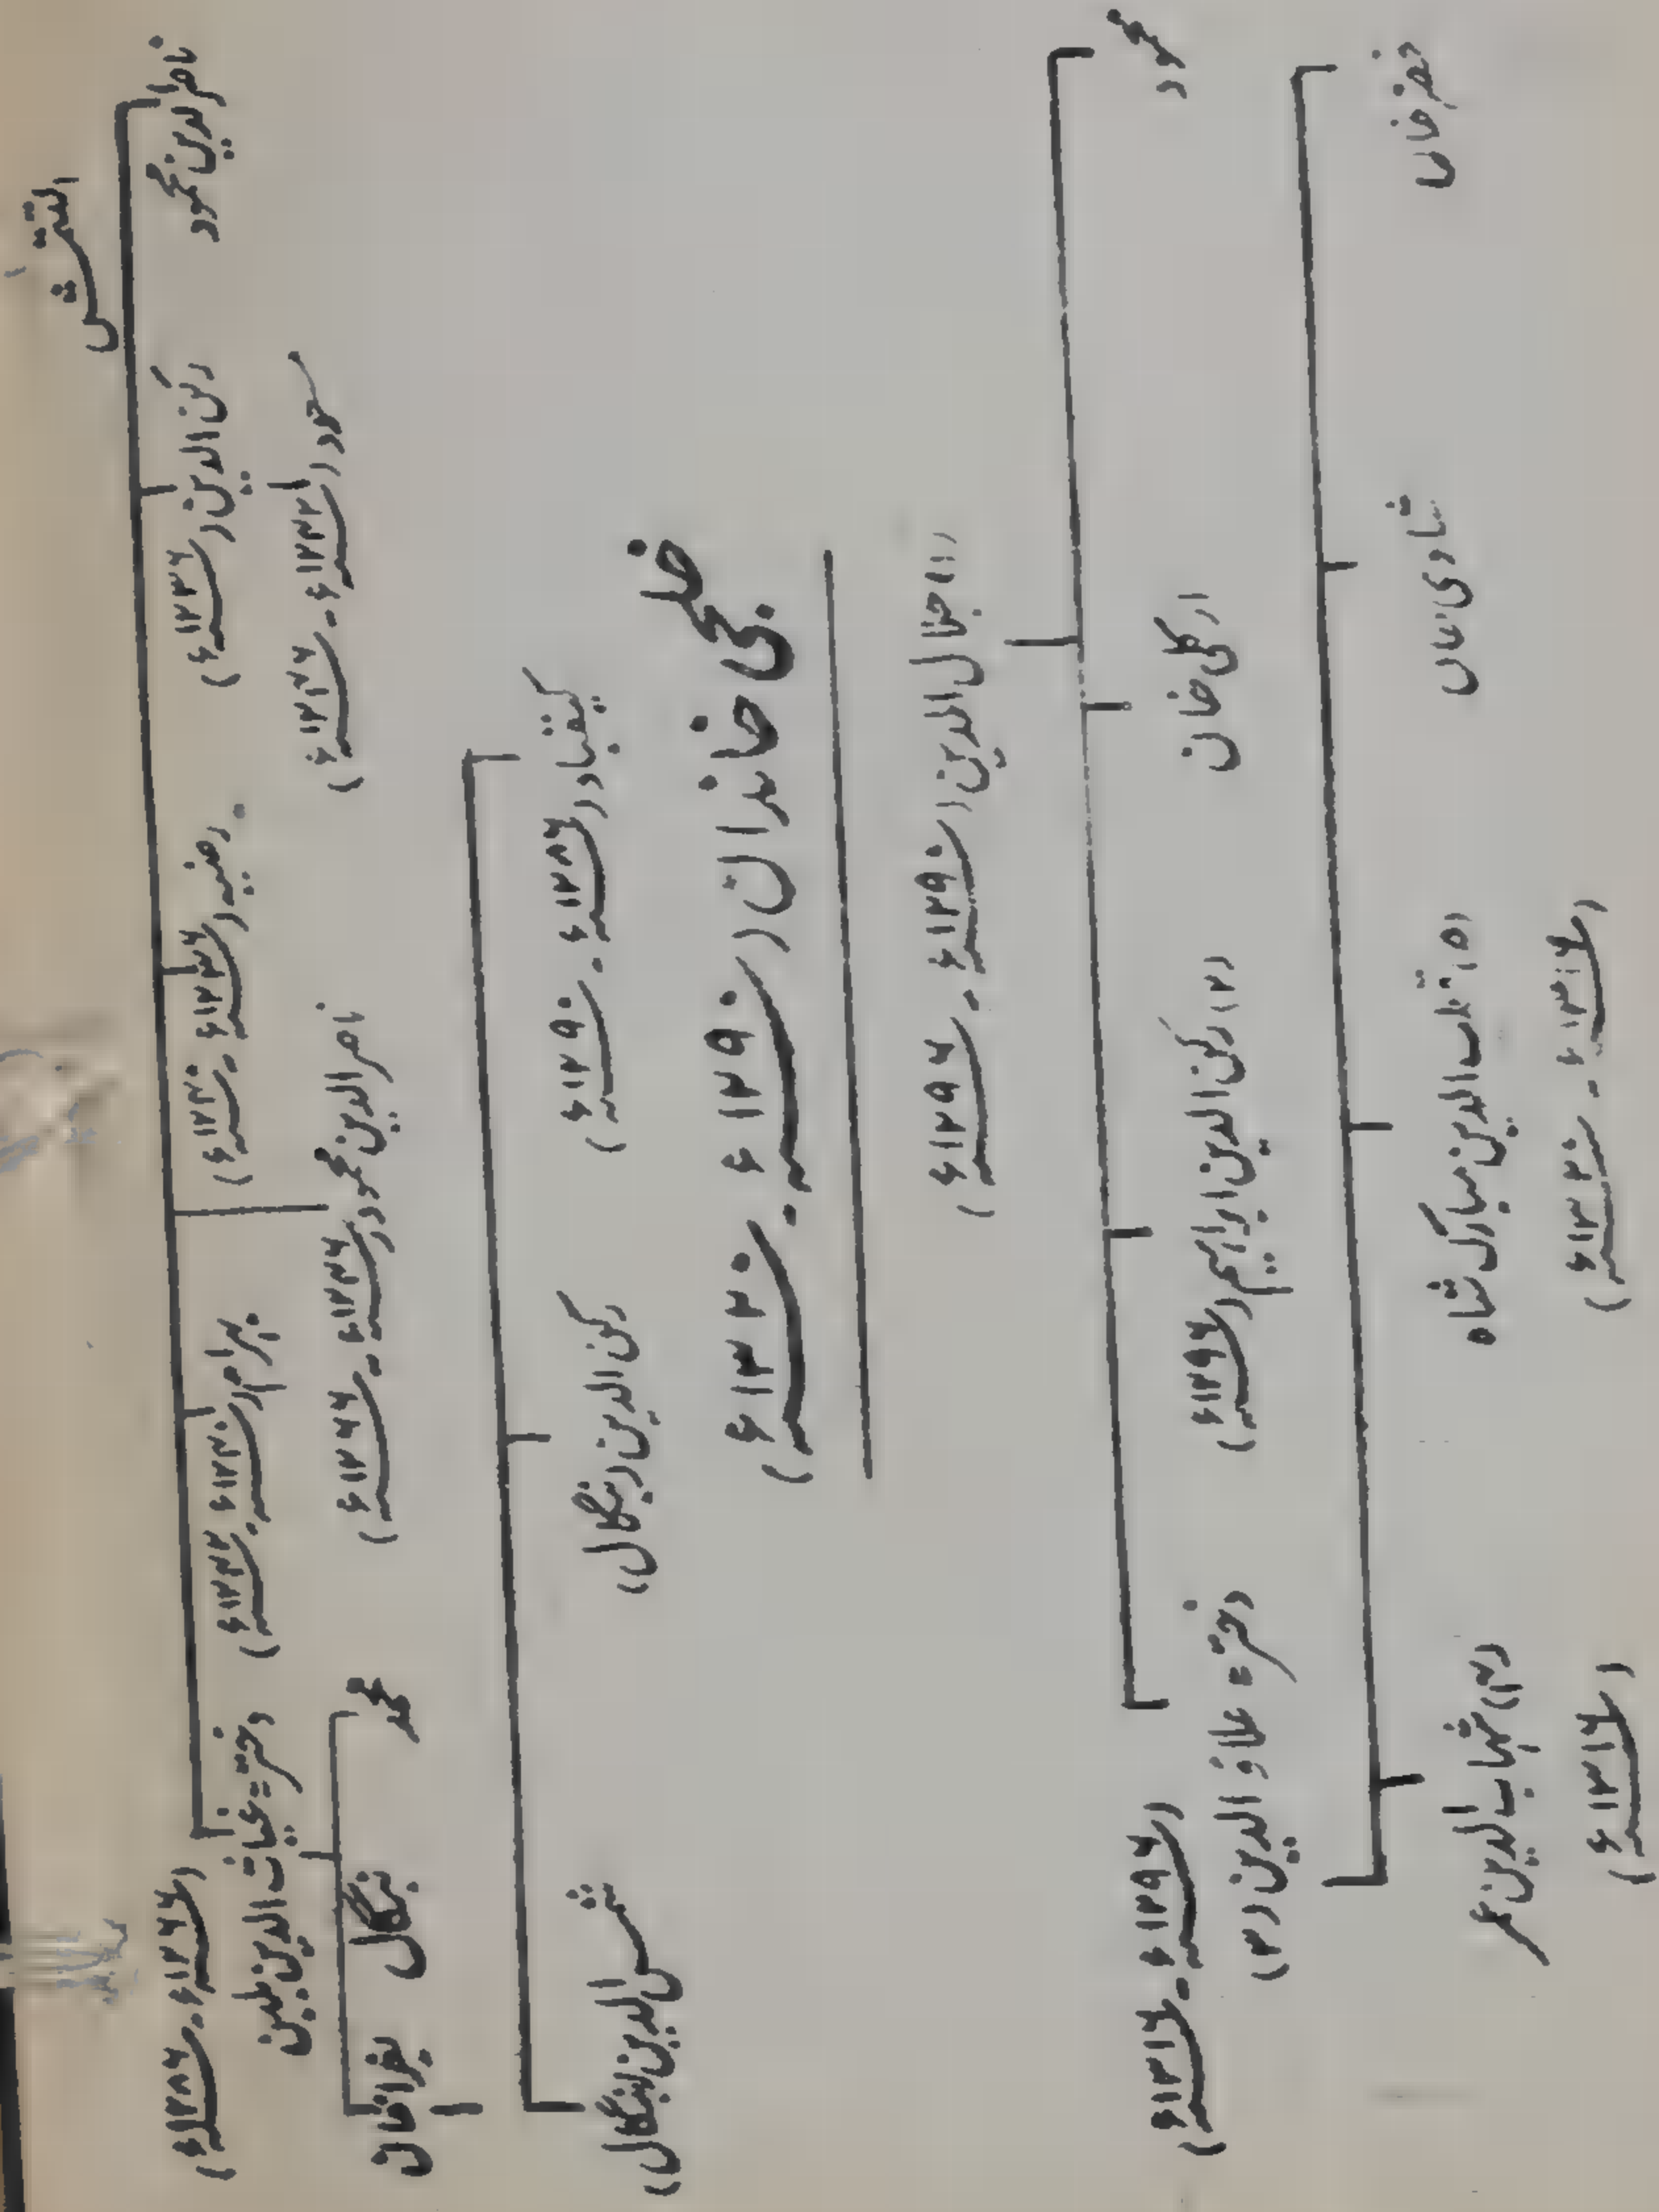 التتمش
ناصرالدین محمود
رکن الدین (۱۲۳۶ء)
رضیہ (۱۲۳۶ء ۔ ۱۲۴۰ء)
بہرام (۱۲۴۰ء ۔ ۱۲۴۲ء)
دختر = غیاث الدین بلبن
(۱۲۶۶ء ۔ ۱۲۸۶ء)
مسعود (۱۲۴۲ء ۔ ۱۲۴۶ء)
ناصر الدین محمود (۱۲۴۶ء ۔ ۱۲۶۶ء)
محمد
بنگال
بغرا خان
کیقباد (۱۲۸۶ء ۔ ۱۲۹۰ء)
رکن الدین (بنگال)
شمس الدین (بنگال)
خلجی خاندان (۱۲۹۰ء ۔ ۱۳۲۰ء)
(۱) جلال الدین (۱۲۹۰ء ۔ ۱۲۹۶ء)
محمود
ارکلی خان
(۲) رکن الدین ابراہیم (۱۲۹۶ء)
دختر = علاؤ الدین (۳)
(۱۲۹۶ء ۔ ۱۳۱۶ء)
خضر خاں
شادی خاں
(۵) قطب الدین مبارک شاہ
(۱۳۱۶ء ۔ ۱۳۲۰ء)
(۴) شہاب الدین عمر
(۱۳۱۶ء)